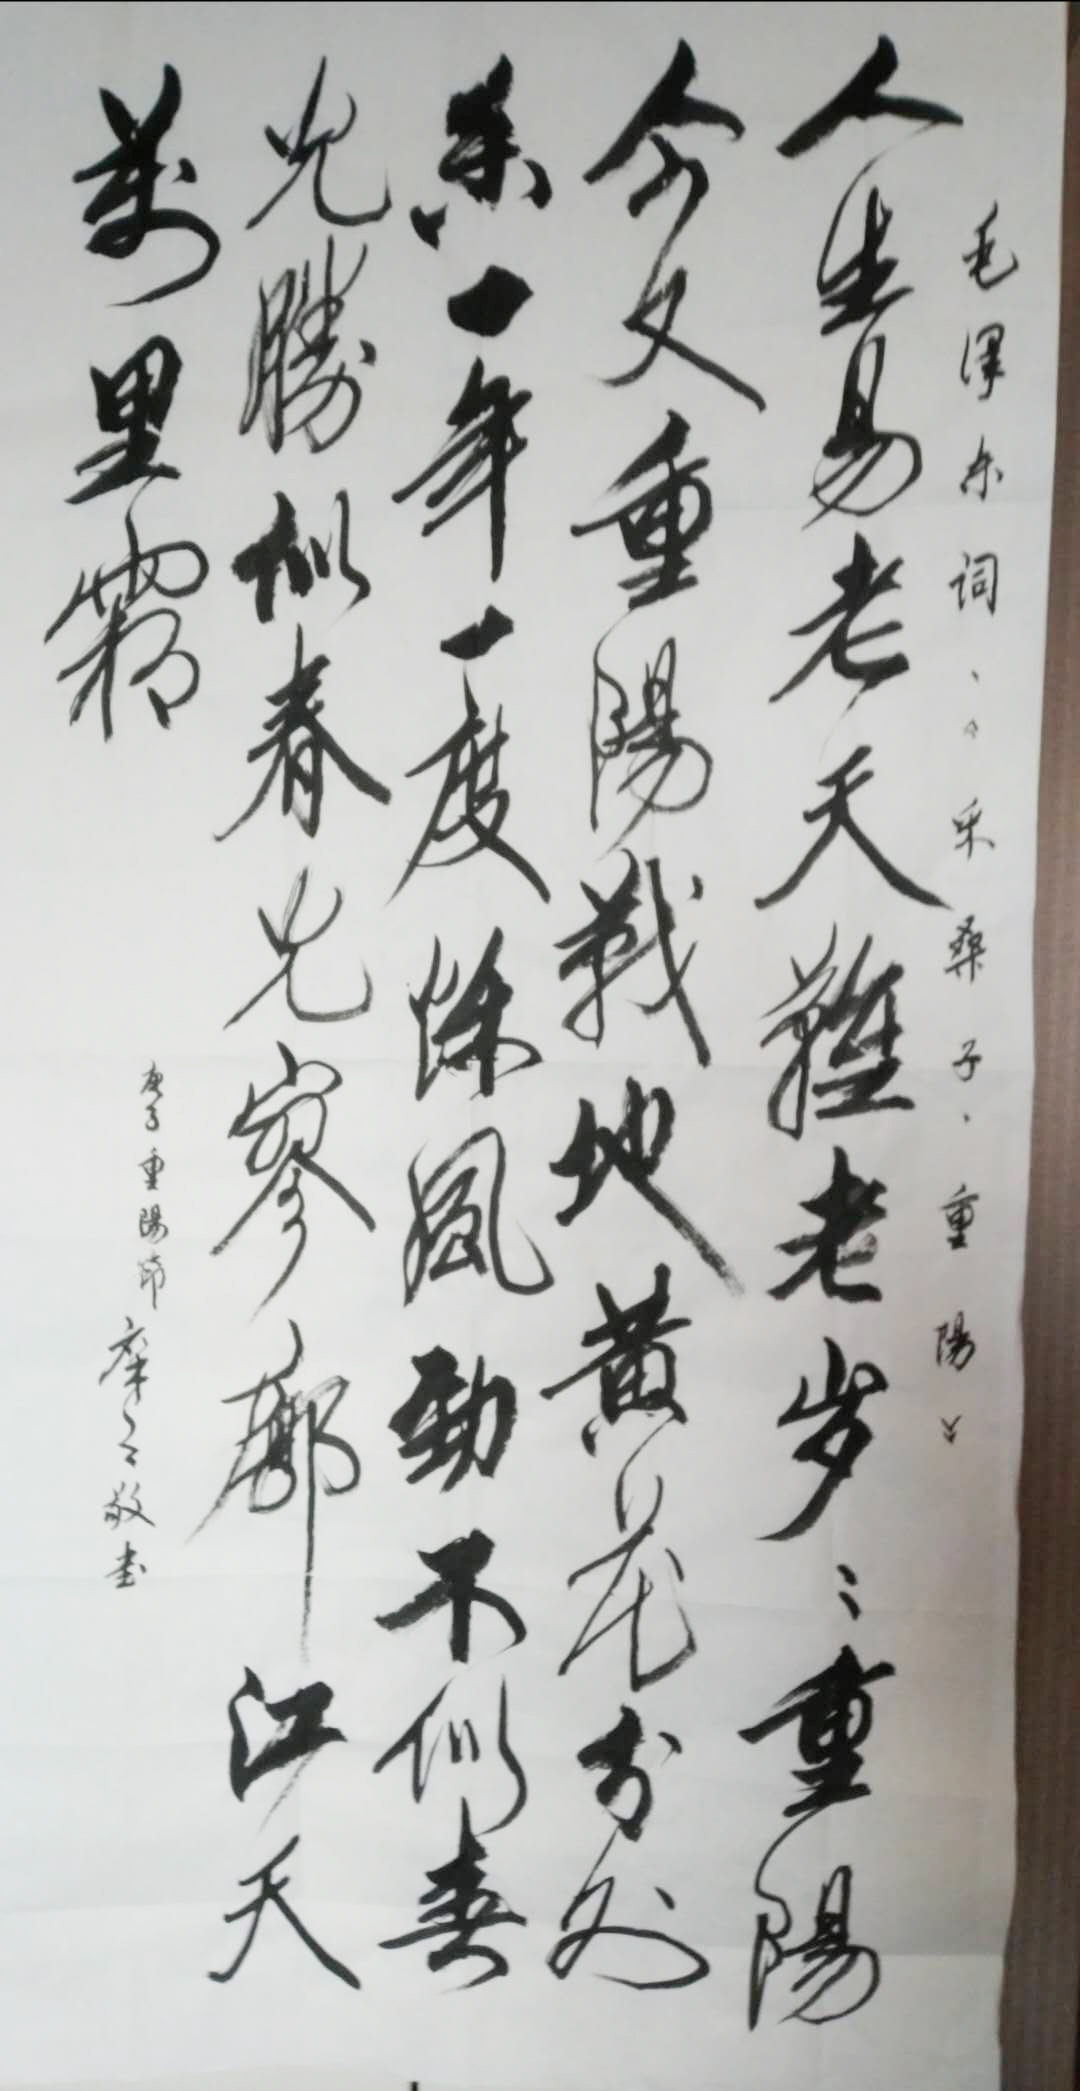 毛澤东词、《采桑子·重陽》
人生易老天難老岁〻重陽
今又重陽戰地黄花分外
香一年一度秋風勁不似春
光勝似春光寥廓江天
萬里霜
庚子重陽節 敬书